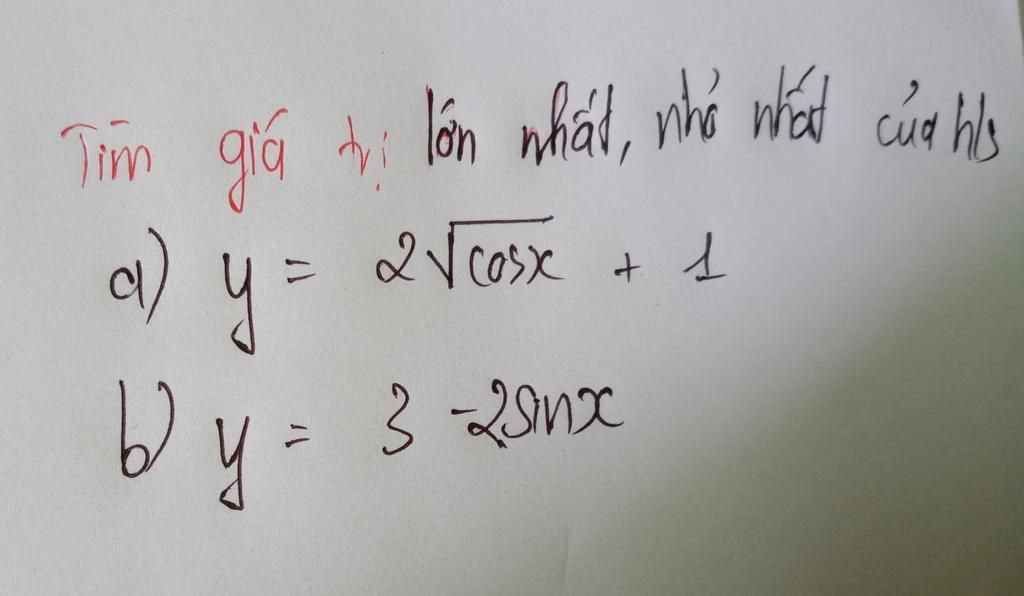 Tìm giá trị lớn nhất, nhỏ nhất của h/s
a) y = 2√cosx + 1
b) y = 3 - 2sinx